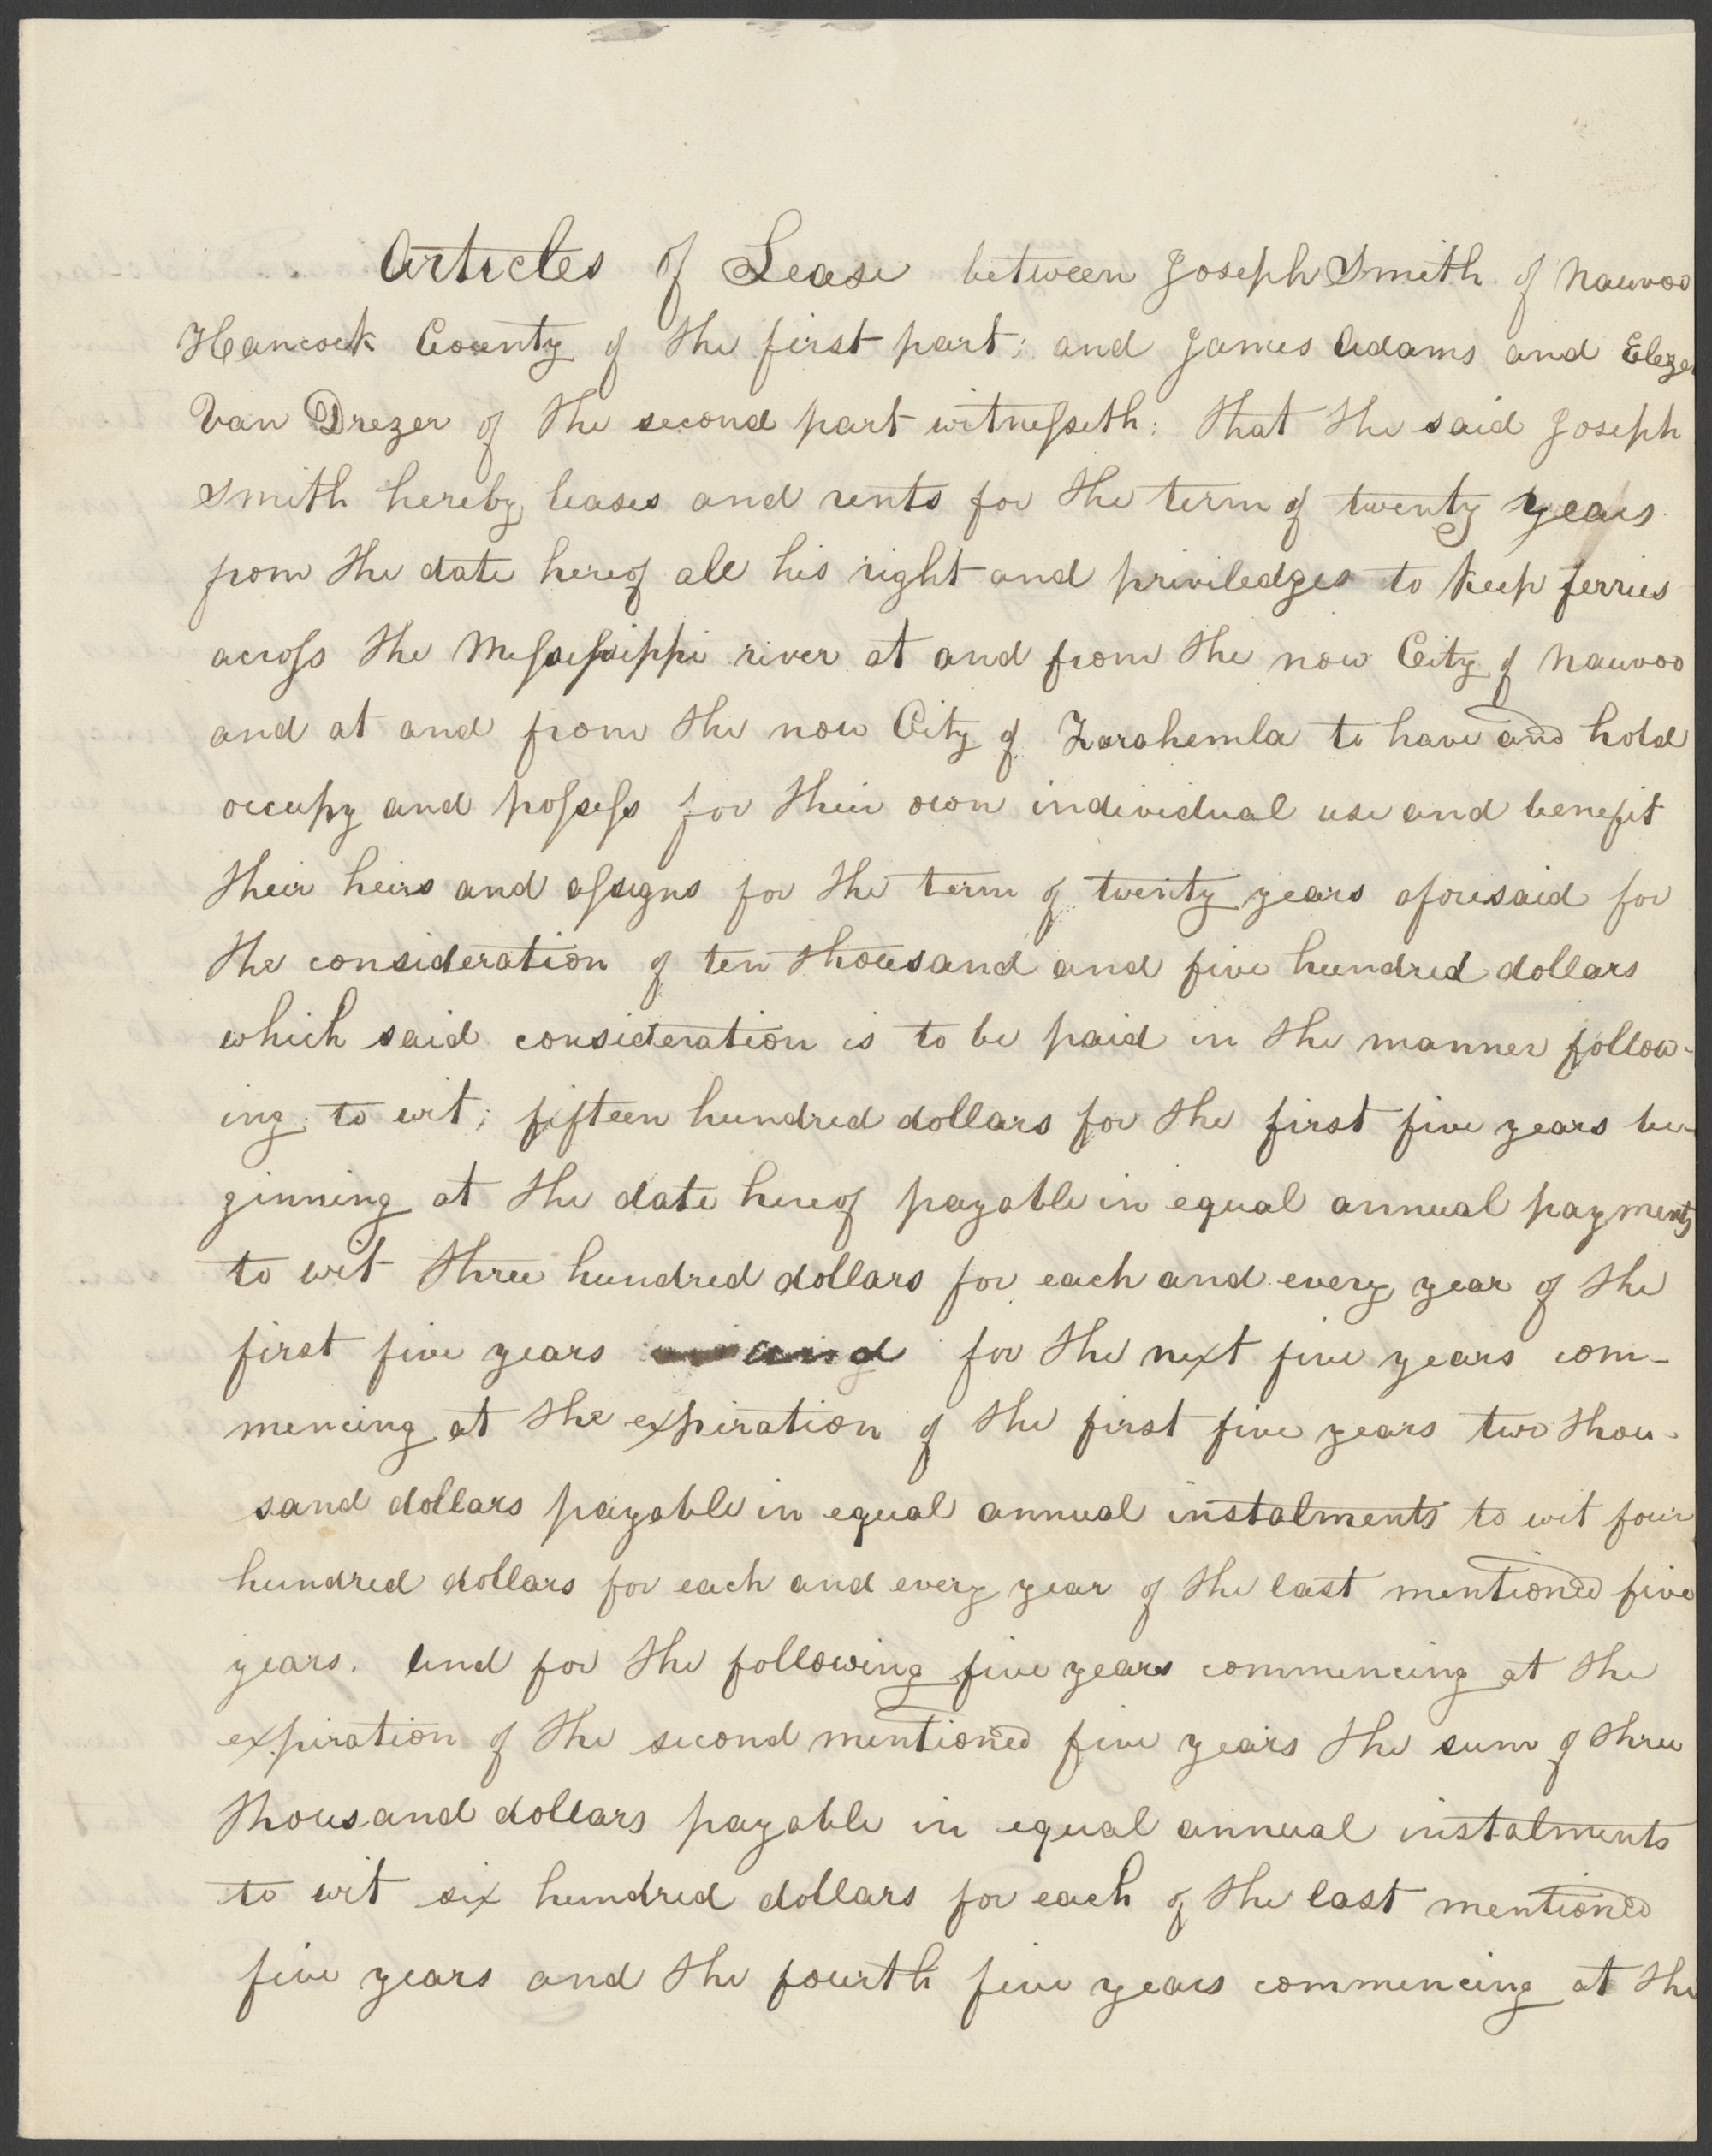 Articles of Lease between Joseph Smith of Nauvoo
Hancock County of the first part; and James Adams and Elezer
Van Drezer of the second part witnesseth: that the said Joseph
Smith hereby leases and rents for the term of twenty years
from the date hereof all his right and priviledges to keep ferries
across the Messessippi river at and from the now City of Nauvoo
and at and from the now City of Zarahemla to have and hold
occupy and possess for their own individual use and benefit
their heirs and assigns for the term of twenty years aforesaid for
the consideration of ten thousand and five hundred dollars
which said consideration is to be paid in the manner follow-
ing to wit; fifteen hundred dollars for the first five years be-
ginning at the date hereof payable in equal annual payments
to wit three hundred dollars for each and every year of the
first five years and for the next five years com-
mencing at the expiration of the first five years two thou-
sand dollars payable in equal annual instalments to wit four
hundred dollars for each and every year of the last mentioned five
years. And for the following five years commencing at the
expiration of the second mentioned five years the sum of three
thousand dollars payable in equal annual instalments
to wit six hundred dollars for each of the last mentioned
five years and the fourth five years commencing at the